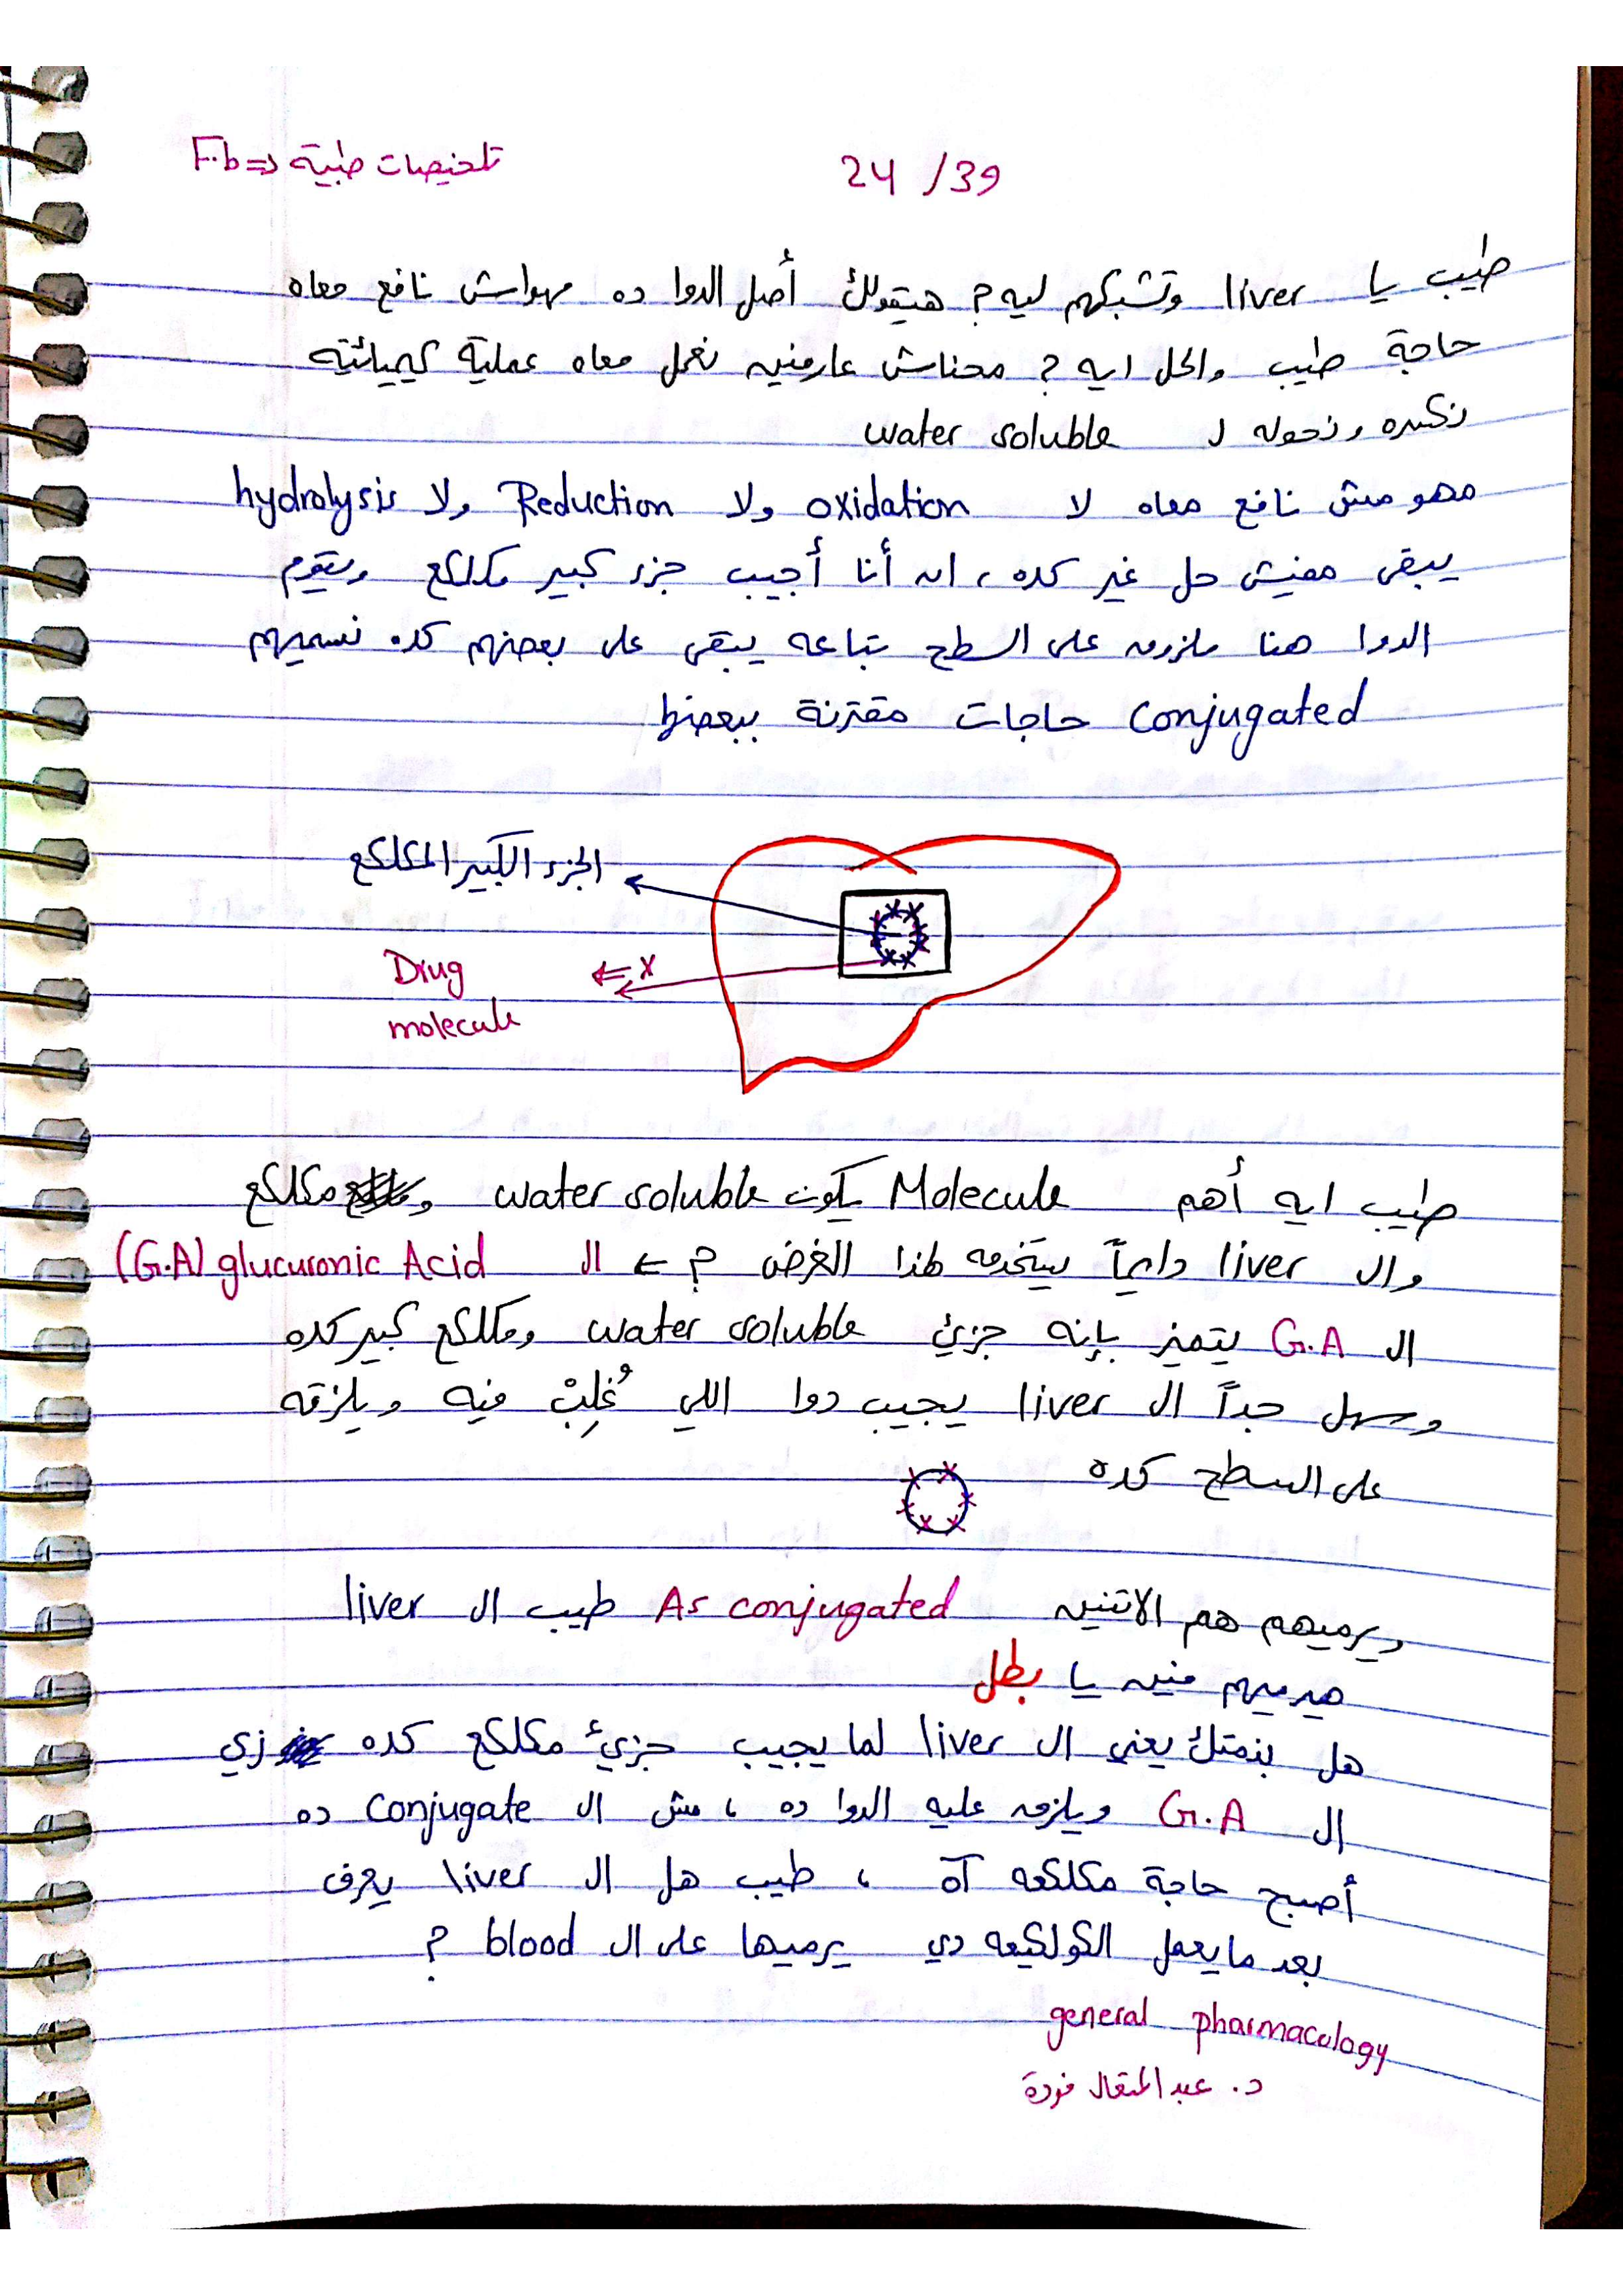 تلخيصات طبية => F.b
24/39
طيب يا liver وتشبكهم ليه؟ هيقولك أصل الدوا ده مهواش نافع معاه
حاجة طيب والحل ايه؟ محناش عارفين نعمل معاه عملية كيميائية
نكسره ونحوله ل water soluble
مهو مش نافع معاه لا oxidation ولا Reduction ولا hydrolysis
يبقى مفيش حل غير كده، ان أنا أجيب جزء كبير مكلكع ويقوم
الدوا هنا ملزوق على السطح بتاعه يبقى على بعضهم كده نسميهم
conjugated حاجات مقترنة ببعضها
الجزء الكبير المكلكع
Drug
molecule
<= x
طيب ايه أهم Molecule يكون water soluble و مكلكع
وال liver دايماً يستخدمه لهذا الغرض؟ ← ال glucuronic Acid (G.A)
ال G.A يتميز بإنه جزئ water soluble ومكلكع كبير كده
وسهل جداً ال liver يجيب دوا اللي غُلِبْ فيه ويلزقه
على السطح كده
ويرميهم هم الاتنين As conjugated طيب ال liver
هيرميهم فين يا بطل
هل بذمتك يعني ال liver لما يجيب جزئ مكلكع كده زي
ال G.A ويلزق عليه الدوا ده، مش ال conjugate ده
أصبح حاجة مكلكعه آه، طيب هل ال liver يعرف
بعد ما يعمل الكولكيعه دي يرميها على ال blood ؟
general pharmacology
د. عبد المتعال فودة